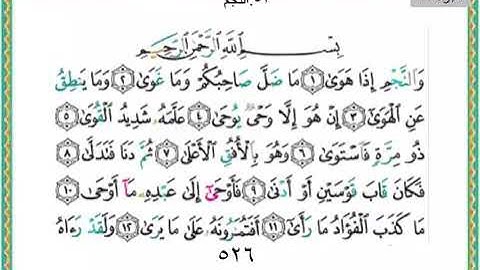 ٥٣. النجم
بِسْمِ ٱللَّهِ ٱلرَّحْمَٰنِ ٱلرَّحِيمِ
وَٱلنَّجْمِ إِذَا هَوَىٰ ١ مَا ضَلَّ صَاحِبُكُمْ وَمَا غَوَىٰ ٢ وَمَا يَنطِقُ
عَنِ ٱلْهَوَىٰ ٣ إِنْ هُوَ إِلَّا وَحْىٌ يُوحَىٰ ٤ عَلَّمَهُۥ شَدِيدُ ٱلْقُوَىٰ ٥
ذُو مِرَّةٍ فَٱسْتَوَىٰ ٦ وَهُوَ بِٱلْأُفُقِ ٱلْأَعْلَىٰ ٧ ثُمَّ دَنَا فَتَدَلَّىٰ ٨
فَكَانَ قَابَ قَوْسَيْنِ أَوْ أَدْنَىٰ ٩ فَأَوْحَىٰٓ إِلَىٰ عَبْدِهِۦ مَآ أَوْحَىٰ ١٠
مَا كَذَبَ ٱلْفُؤَادُ مَا رَأَىٰٓ ١١ أَفَتُمَٰرُونَهُۥ عَلَىٰ مَا يَرَىٰ ١٢ وَلَقَدْ رَءَاهُ
٥٢٦